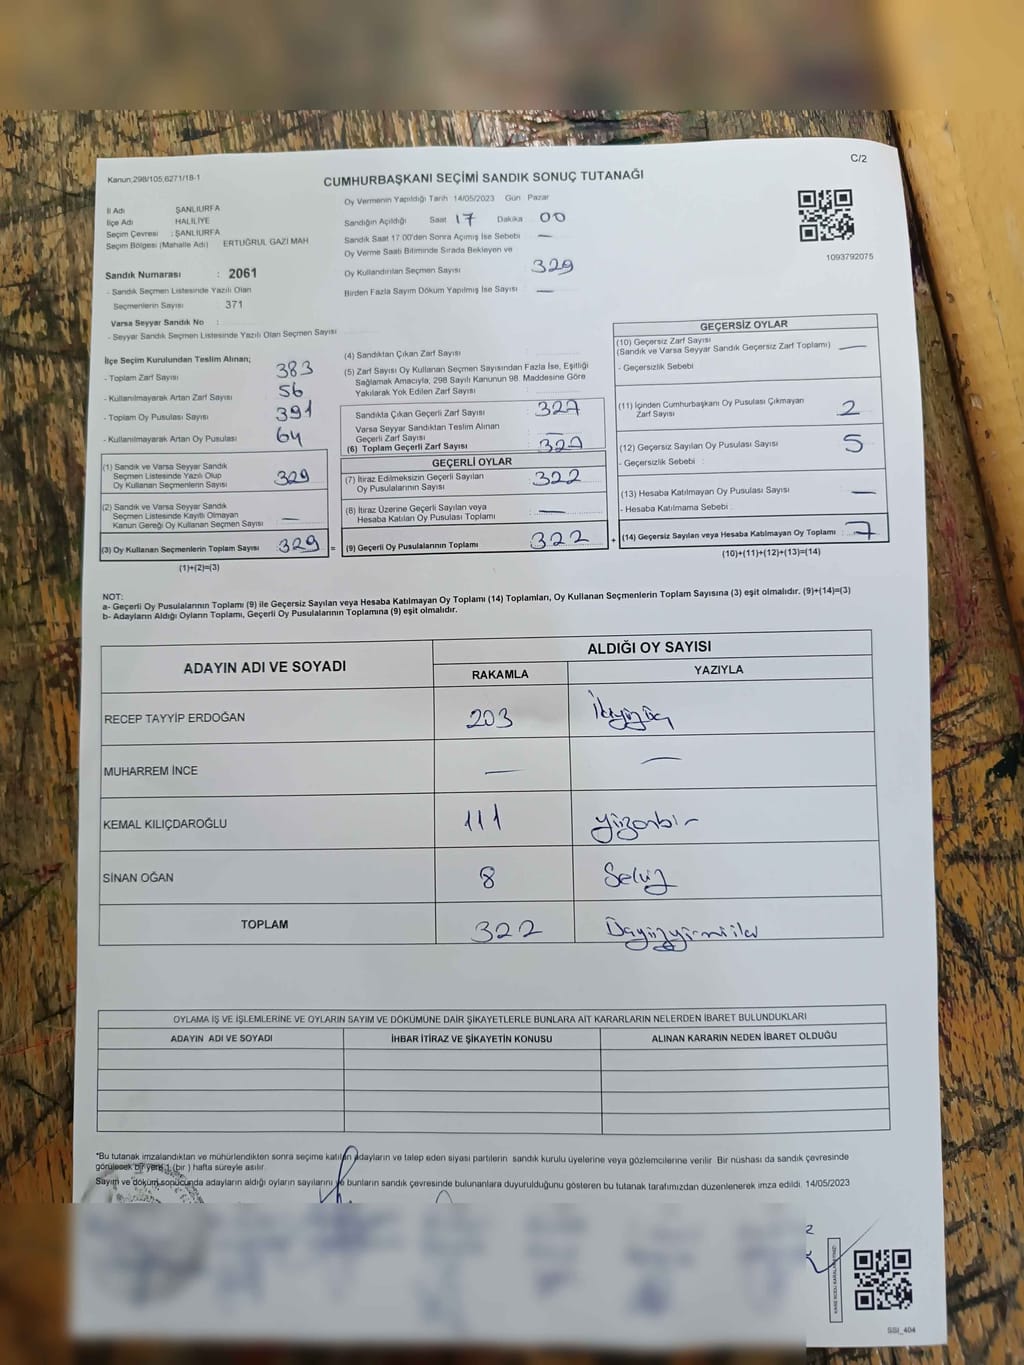 C/2
Kanun;298/105,6271/18-1
CUMHURBAŞKANI SEÇİMİ SANDIK SONUÇ TUTANAĞI
İl Adı ŞANLIURFA
İlçe Adı HALİLİYE
Seçim Çevresi : ŞANLIURFA
Seçim Bölgesi (Mahalle Adı) ERTUĞRUL GAZİ MAH
Sandık Numarası : 2061
- Sandık Seçmen Listesinde Yazılı Olan
Seçmenlerin Sayısı : 371
Varsa Seyyar Sandık No :
- Seyyar Sandık Seçmen Listesinde Yazılı Olan Seçmen Sayısı
Oy Vermenin Yapıldığı Tarih 14/05/2023 Gün Pazar
Sandığın Açıldığı Saat 17 Dakika 00
Sandık Saat 17:00'den Sonra Açımış İse Sebebi —
Oy Verme Saati Bitiminde Sırada Bekleyen ve
Oy Kullandırılan Seçmen Sayısı 329
Birden Fazla Sayım Döküm Yapılmış İse Sayısı —
1093792075
İlçe Seçim Kurulundan Teslim Alınan;
- Toplam Zarf Sayısı 383
- Kullanılmayarak Artan Zarf Sayısı 56
- Toplam Oy Pusulası Sayısı 391
- Kullanılmayarak Artan Oy Pusulası 64
(1) Sandık ve Varsa Seyyar Sandık
Seçmen Listesinde Yazılı Olup
Oy Kullanan Seçmenlerin Sayısı 329
(2) Sandık ve Varsa Seyyar Sandık
Seçmen Listesinde Kayıtlı Olmayan
Kanun Gereği Oy Kullanan Seçmen Sayısı —
(3) Oy Kullanan Seçmenlerin Toplam Sayısı 329 =
(1)+(2)=(3)
(4) Sandıktan Çıkan Zarf Sayısı
(5) Zarf Sayısı Oy Kullanan Seçmen Sayısından Fazla İse, Eşitliği
Sağlamak Amacıyla, 298 Sayılı Kanunun 98. Maddesine Göre
Yakılarak Yok Edilen Zarf Sayısı
Sandıkta Çıkan Geçerli Zarf Sayısı 327
Varsa Seyyar Sandıktan Teslim Alınan
Geçerli Zarf Sayısı —
(6) Toplam Geçerli Zarf Sayısı 327
GEÇERLİ OYLAR
(7) İtiraz Edilmeksizin Geçerli Sayılan
Oy Pusulalarının Sayısı 322
(8) İtiraz Üzerine Geçerli Sayılan veya
Hesaba Katılan Oy Pusulası Toplamı —
(9) Geçerli Oy Pusulalarının Toplamı 322 +
GEÇERSİZ OYLAR
(10) Geçersiz Zarf Sayısı
(Sandık ve Varsa Seyyar Sandık Geçersiz Zarf Toplamı) —
- Geçersizlik Sebebi
(11) İçinden Cumhurbaşkanı Oy Pusulası Çıkmayan
Zarf Sayısı 2
(12) Geçersiz Sayılan Oy Pusulası Sayısı 5
- Geçersizlik Sebebi :
(13) Hesaba Katılmayan Oy Pusulası Sayısı —
- Hesaba Katılmama Sebebi
(14) Geçersiz Sayılan veya Hesaba Katılmayan Oy Toplamı : 7
(10)+(11)+(12)+(13)=(14)
NOT:
a- Geçerli Oy Pusulalarının Toplamı (9) ile Geçersiz Sayılan veya Hesaba Katılmayan Oy Toplamı (14) Toplamları, Oy Kullanan Seçmenlerin Toplam Sayısına (3) eşit olmalıdır. (9)+(14)=(3)
b- Adayların Aldığı Oyların Toplamı, Geçerli Oy Pusulalarının Toplamına (9) eşit olmalıdır.
ADAYIN ADI VE SOYADI ALDIĞI OY SAYISI
RAKAMLA YAZIYLA
RECEP TAYYİP ERDOĞAN 203 İkiyüzüç
MUHARREM İNCE — —
KEMAL KILIÇDAROĞLU 111 yüzonbir
SİNAN OĞAN 8 Sekiz
TOPLAM 322 Üçyüzyirmiiki
OYLAMA İŞ VE İŞLEMLERİNE VE OYLARIN SAYIM VE DÖKÜMÜNE DAİR ŞİKAYETLERLE BUNLARA AİT KARARLARIN NELERDEN İBARET BULUNDUKLARI
ADAYIN ADI VE SOYADI İHBAR İTİRAZ VE ŞİKAYETİN KONUSU ALINAN KARARIN NEDEN İBARET OLDUĞU
*Bu tutanak imzalandıktan ve mühürlendikten sonra seçime katılan adayların ve talep eden siyasi partilerin sandık kurulu üyelerine veya gözlemcilerine verilir. Bir nüshası da sandık çevresinde
görülecek bir yere 1 (bir ) hafta süreyle asılır.
Sayım ve döküm sonucunda adayların aldığı oyların sayılarını ve bunların sandık çevresinde bulunanlara duyurulduğunu gösteren bu tutanak tarafımızdan düzenlenerek imza edildi. 14/05/2023
SSI_404